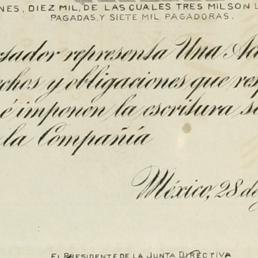 NES, DIEZ MIL, DE LAS CUALES TRES MIL SON L
PAGADAS, Y SIETE MIL PAGADORAS.
tador representa Una Ac
chos y obligaciones que res
é imponen la escritura so
la Compañía
México, 28 de
EL PRESIDENTE DE LA JUNTA DIRECTIVA